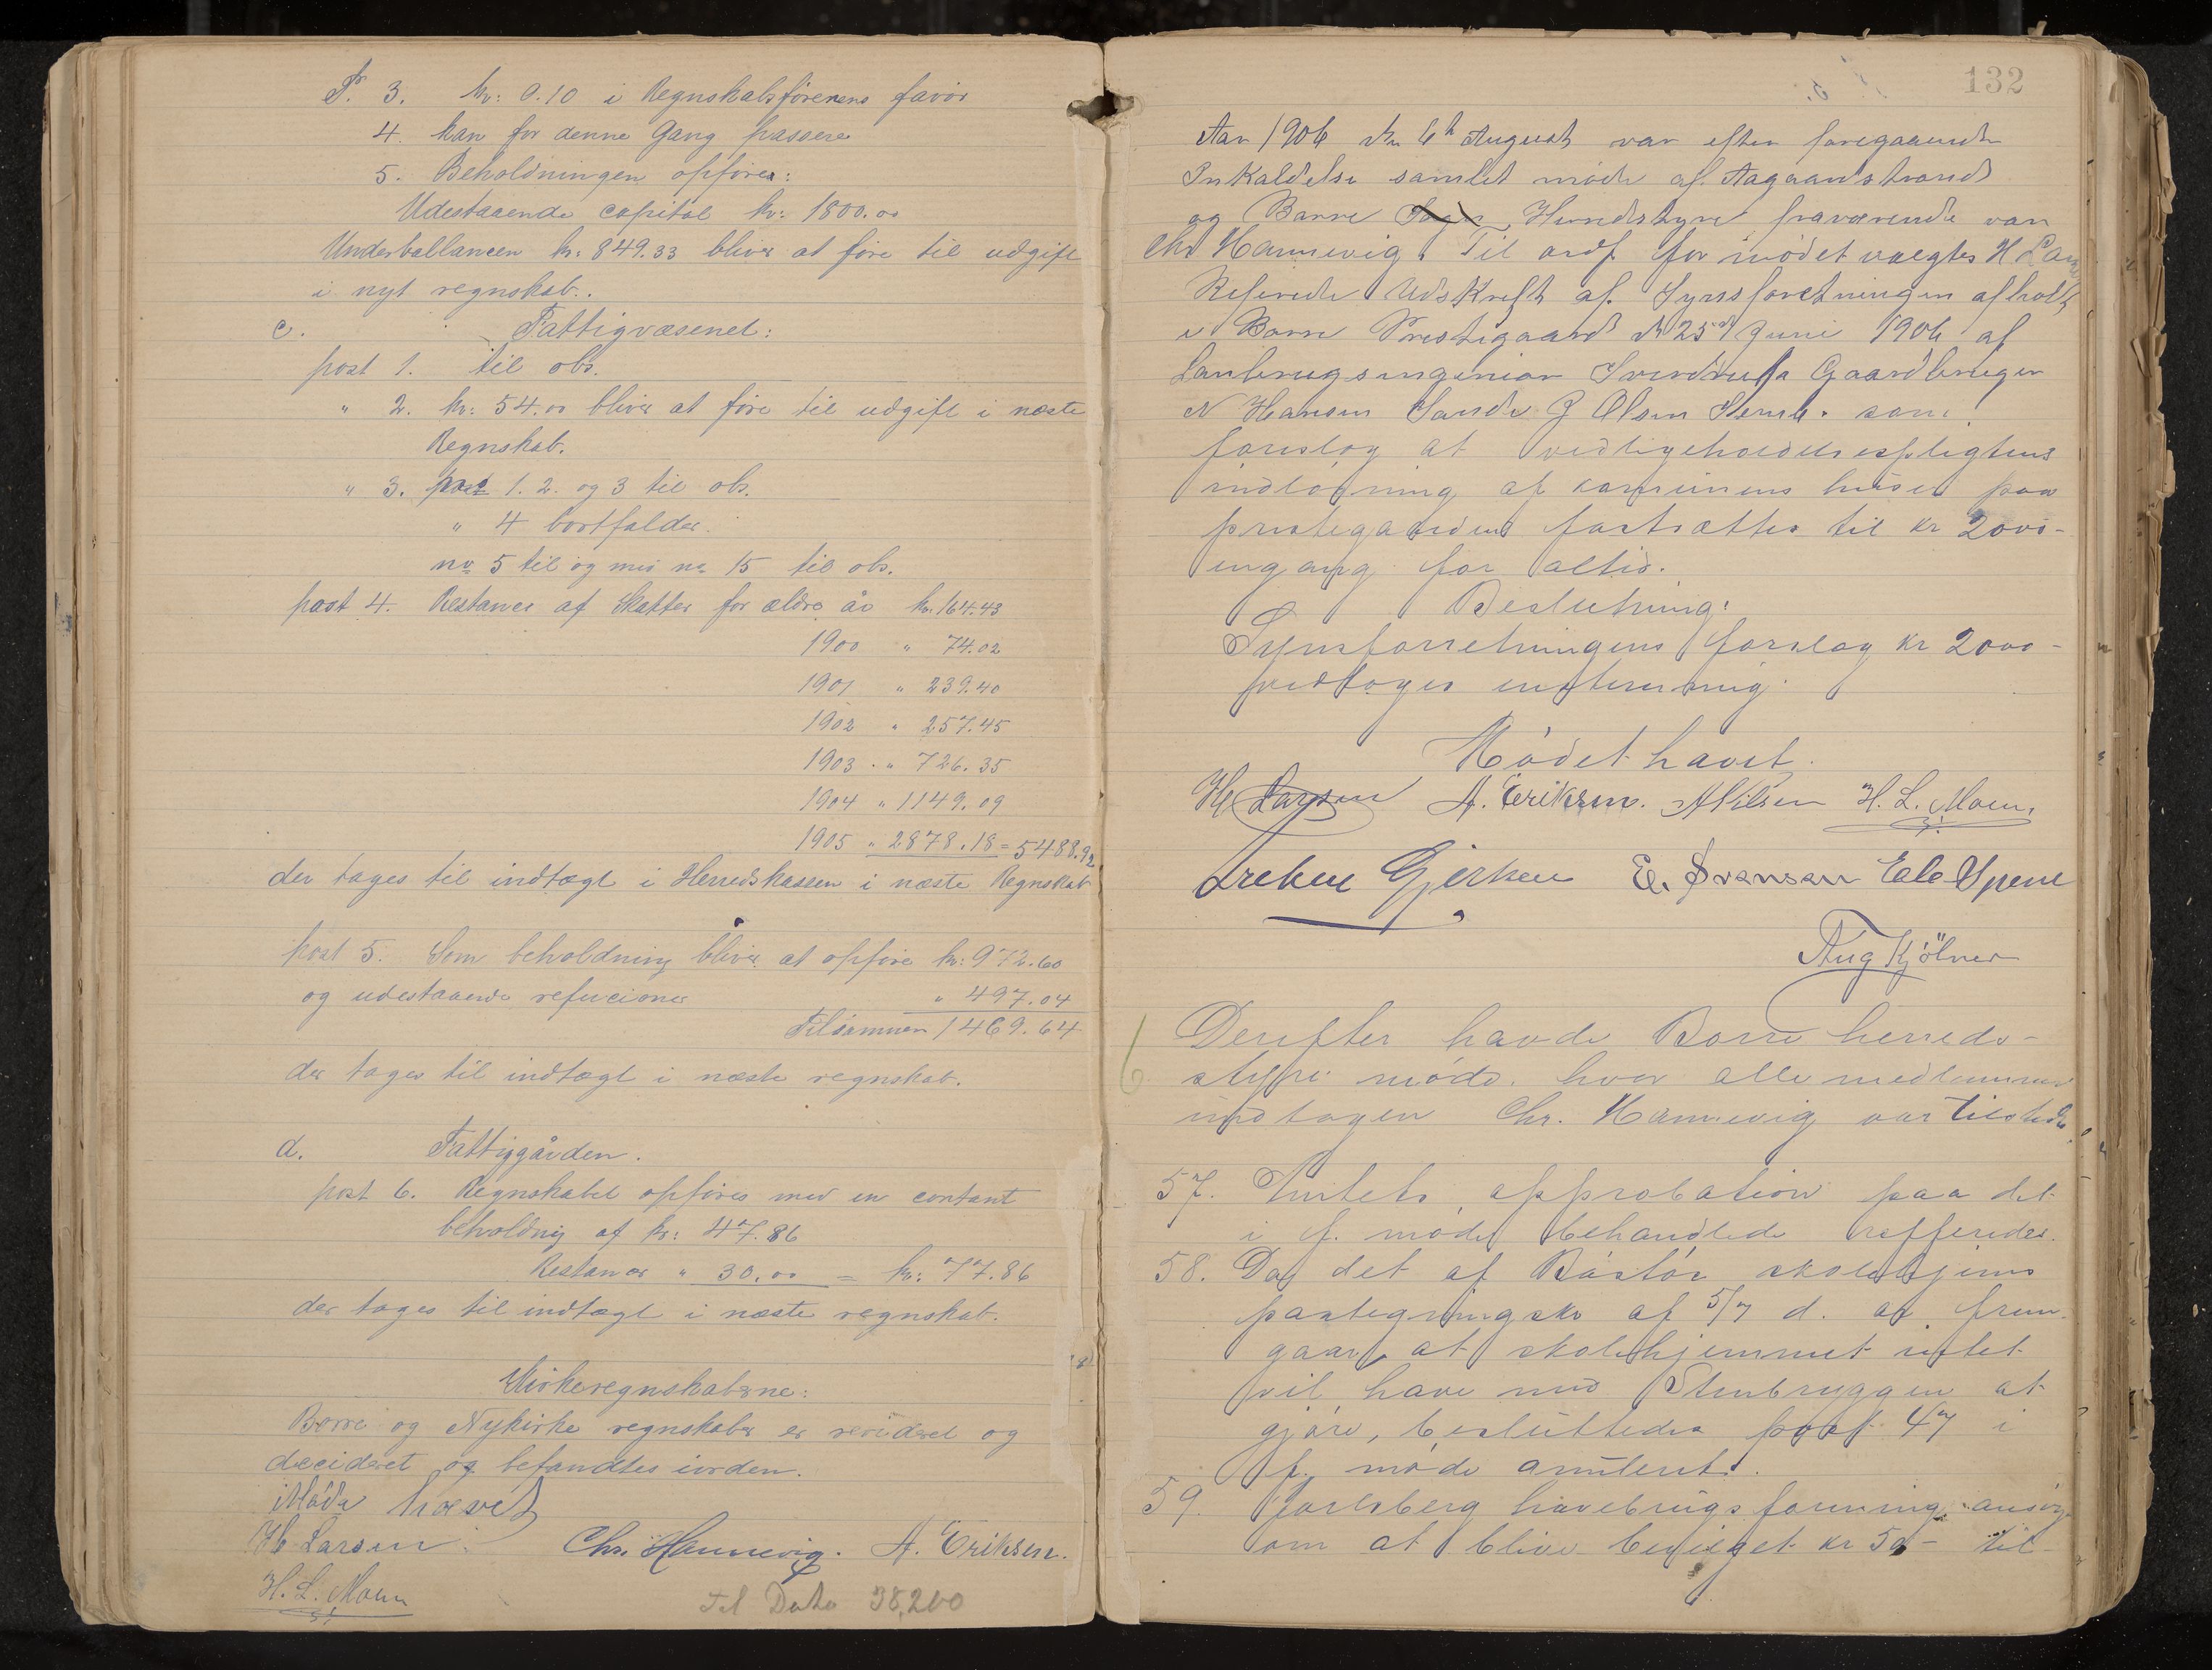 P. 3. kr: 0.10 i Regnskabsførerens favör
4. kan for denne Gang passere
5. Beholdningen opføres:
Udestaaende capital kr: 1800.00
Underballancen kr: 849.33 bliver at føre til udgift
i nyt regnskab.
c. Fattigvæsenet:
post 1. til obs.
" 2. kr: 54.00 bliver at føre til udgift i næste
Regnskab.
" 3. post 1. 2. og 3 til obs.
" 4 bortfalder.
no 5 til og med no 15 til obs.
post 4. Restancer af Skatter for ældre år kr. 164.43
1900 " 74.02
1901 " 239.40
1902 " 257.45
1903 " 726.35
1904 " 1149.09
1905 " 2878.18 = 5488.92
der tages til indtægt i Herredskassen i næste Regnskab
post 5. Som beholdning bliver at opføre kr: 972.60
og udestaaende refucioner " 497.04
Tilsammen 1469.64
der tages til indtægt i næste regnskab.
d. Fattiggården.
post 6. Regnskabet opføres med en contant
beholdnig af kr: 47.86
Restancer " 30.00 = kr: 77.86
der tages til indtægt i næste regnskab.
Kirkeregnskaberne:
Borre og Nykirke regnskaber er revideret og
decideret og befandtes iorden.
Møde hævet
H Larsen Chr. Hannevig. A. Eriksen.
H. L. Moen
Til Dato 38,200
132
Aar 1906 den 6te August var efter foregaaende
Inkaldelse samlet møde af Aagaardstrand
og Borre Sogn Herredstyre fraværende var
Chr Hannevig. Til ordf for mødet valgtes H Lar
Refererede Udskrift af Synsforretningen afholt
i Borre Prestegaard d 25de Juni 1906 af
Lanbrugsingeniør Sverdrup Gaardbruger
N Hansen Sande J Olsen Semb. som
foreslog at vedligeholdelsespligtens
indløsning af kommunens huser paa
prestegaarden fastsættes til kr 2000-
engang for altid.
Beslutning:
Synsforretningens forslag kr 2000-
vedtoges enstemmig.
Mödet hævet.
H Larsen A. Eriksen. A Nilsen H. L. Moen.
Gjerken E. Svensen
Aug Kjölner
Derefter havde Borre herreds-
styre møde. hvor alle medlemmer
undtagen Chr. Hannevig var tilstede
57. Amtets approbation paa det
i f. møde behandlede reffereredes.
58. Da det af Bastø skolehjems
paategningskr af 5/7 d. a. frem-
gaar, at skolehjemmet intet
vil have med Stenbryggen at
gjøre, besluttedes post 47 i
f. møde anuleret.
59. Jarlsberg havebrugsforening ansøg
om at blive bevilget kr 50- til